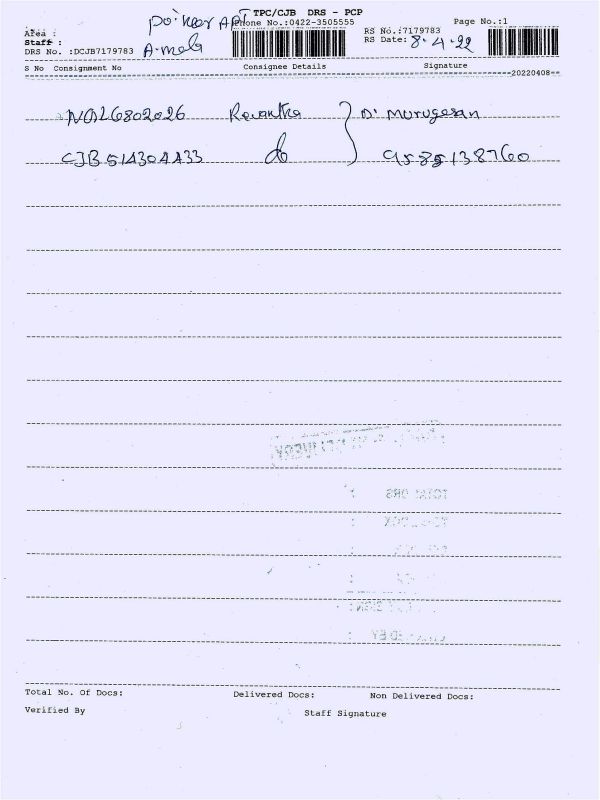 TPC/CJB DRS - PCP
Phone No.:0422-3505555 Page No.:1
Area :
Staff : A.mala
DRS No. :DCJB7179783
RS No.:7179783
RS Date: 8-4-22
S No Consignment No Consignee Details Signature
20220408
6802026 Revantha D. Murugesan
CJB 514304433 do 9585138760
TOTAL DRS :
Total No. Of Docs: Delivered Docs: Non Delivered Docs:
Verified By Staff Signature